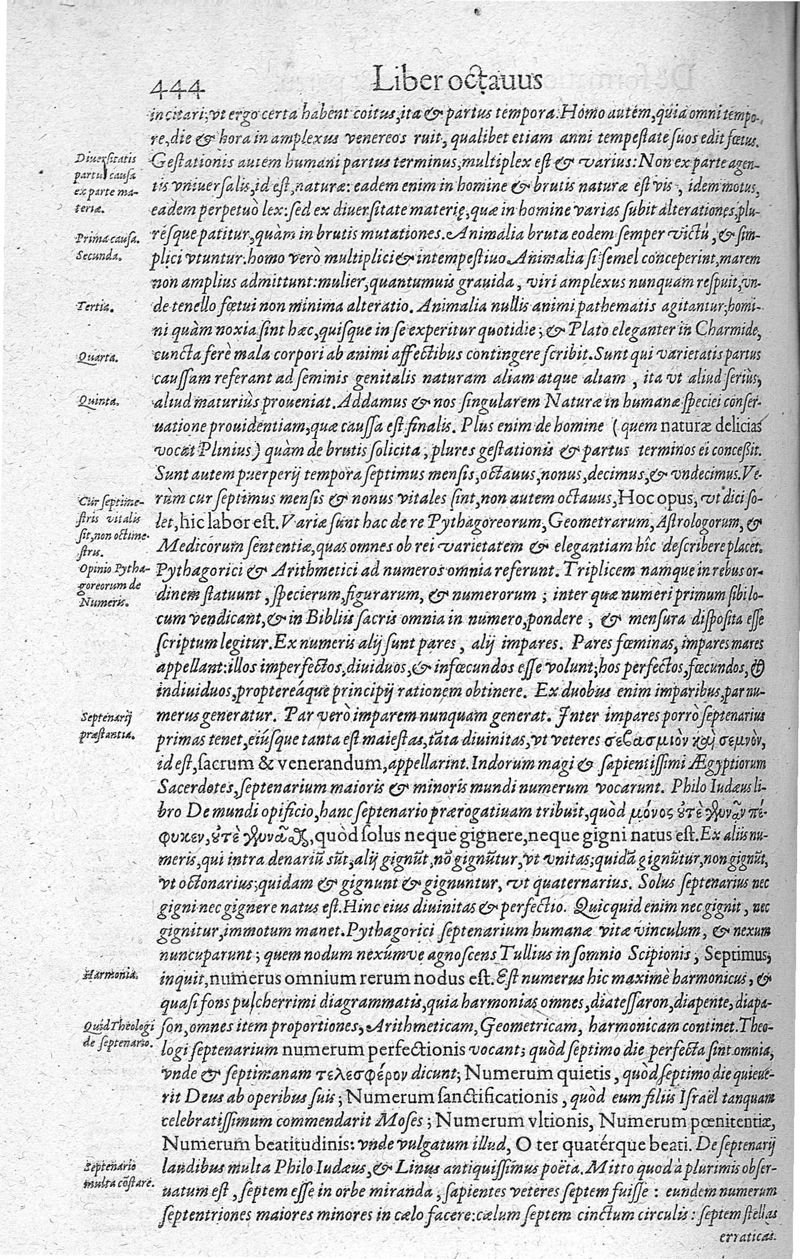 444 Liber octavus
incitari; vt ergo certa habent coitus, ita & partus tempora. Homo autem, quia omni tempo-
re, die & hora in amplexus venereos ruit, qualibet etiam anni tempestate suos edit fœtus.
Diuersitatis partus causa ex parte materiæ.
Gestationis autem humani partus terminus, multiplex est & varius: Non ex parte agen-
tis vniuersalis, id est, naturæ: eadem enim in homine & brutis naturæ est vis, idem motus,
eadem perpetuò lex: sed ex diuersitate materię, quæ in homine varias subit alterationes, plu-
Prima causa.
résque patitur, quàm in brutis mutationes. Animalia bruta eodem semper victu, & sim-
Secunda.
plici vtuntur. homo verò multiplici & intempestiuo. Animalia si semel conceperint, marem
non amplius admittunt: mulier, quantumuis grauida, viri amplexus nunquam respuit, vn-
Tertia.
de tenello fœtui non minima alteratio. Animalia nullis animi pathematis agitantur; homi-
ni quàm noxia sint hæc, quisque in se experitur quotidie; & Plato eleganter in Charmide,
Quarta.
cuncta ferè mala corpori ab animi affectibus contingere scribit. Sunt qui varietatis partus
caussam referant ad seminis genitalis naturam aliam atque aliam, ita vt aliud seriùs,
Quinta.
aliud maturiùs proueniat. Addamus & nos singularem Naturæ in humanæ speciei conser-
uatione prouidentiam, quæ caussa est finalis. Plus enim de homine (quem naturæ delicias
vocat Plinius) quàm de brutis solicita, plures gestationis & partus terminos ei concessit.
Sunt autem puerperij tempora septimus mensis, octauus, nonus, decimus, & vndecimus. Ve-
Cur septimestris vitalis sit, non octimestris.
rùm cur septimus mensis & nonus vitales sint, non autem octauus, Hoc opus, vt dici so-
let, hic labor est. Variæ sunt hac de re Pythagoreorum, Geometrarum, Astrologorum, &
Medicorum sententiæ, quas omnes ob rei varietatem & elegantiam hîc describere placet.
Opinio Pythagoreorum de Numeris.
Pythagorici & Arithmetici ad numeros omnia referunt. Triplicem namque in rebus or-
dinem statuunt, specierum, figurarum, & numerorum; inter quæ numeri primum sibi lo-
cum vendicant, & in Bibliis sacris omnia in numero, pondere, & mensura disposita esse
scriptum legitur. Ex numeris alij sunt pares, alij impares. Pares fœminas, impares mares
appellant: illos imperfectos, diuiduos, & infœcundos esse volunt; hos perfectos, fœcundos, &
indiuiduos, proptereáque principij rationem obtinere. Ex duobus enim imparibus, par nu-
Septenarij præstantia.
merus generatur. Par verò imparem nunquam generat. Inter impares porrò septenarius
primas tenet, eiúsque tanta est maiestas, tāta diuinitas, vt veteres σεβασμιὸν καὶ σεμνὸν,
id est, sacrum & venerandum, appellarint. Indorum magi & sapientissimi Ægyptiorum
Sacerdotes, septenarium maioris & minoris mundi numerum vocarunt. Philo Iudæus li-
bro De mundi opificio, hanc septenario prærogatiuam tribuit, quòd μόνος οὐτὲ γεννᾶν πέ-
φυκεν, οὐτὲ γεννᾶσθαι, quòd solus neque gignere, neque gigni natus est. Ex aliis nu-
meris, qui intra denariū sūt, alij gignūt, nō gignūtur, vt vnitas; quidā gignūtur, non gignūt,
vt octonarius; quidam & gignunt & gignuntur, vt quaternarius. Solus septenarius nec
gigni nec gignere natus est. Hinc eius diuinitas & perfectio. Quicquid enim nec gignit, nec
gignitur, immotum manet. Pythagorici septenarium humanæ vitæ vinculum, & nexum
nuncuparunt; quem nodum nexúmve agnoscens Tullius in somnio Scipionis, Septimus,
Harmonia.
inquit, numerus omnium rerum nodus est. Est numerus hic maximè harmonicus, &
quasi fons pulcherrimi diagrammatis, quia harmonias omnes, diatessaron, diapente, diapa-
Quid Theologi de septenario.
son, omnes item proportiones, Arithmeticam, Geometricam, harmonicam continet. Theo-
logi septenarium numerum perfectionis vocant; quòd septimo die perfecta sint omnia,
vnde & septimanam τελεσφέρον dicunt; Numerum quietis, quòd septimo die quieue-
rit Deus ab operibus suis; Numerum sanctificationis, quòd eum filiis Israël tanquam
celebratissimum commendarit Moses; Numerum vltionis, Numerum pœnitentiæ,
Numerum beatitudinis: vnde vulgatum illud, O ter quatérque beati. De septenarij
Septenario multa cōstare.
laudibus multa Philo Iudæus, & Linus antiquissimus poëta. Mitto quod à plurimis obser-
uatum est, septem esse in orbe miranda, sapientes veteres septem fuisse: eundem numerum
septentriones maiores minores in cælo facere: cælum septem cinctum circulis: septem stellas
erraticas.